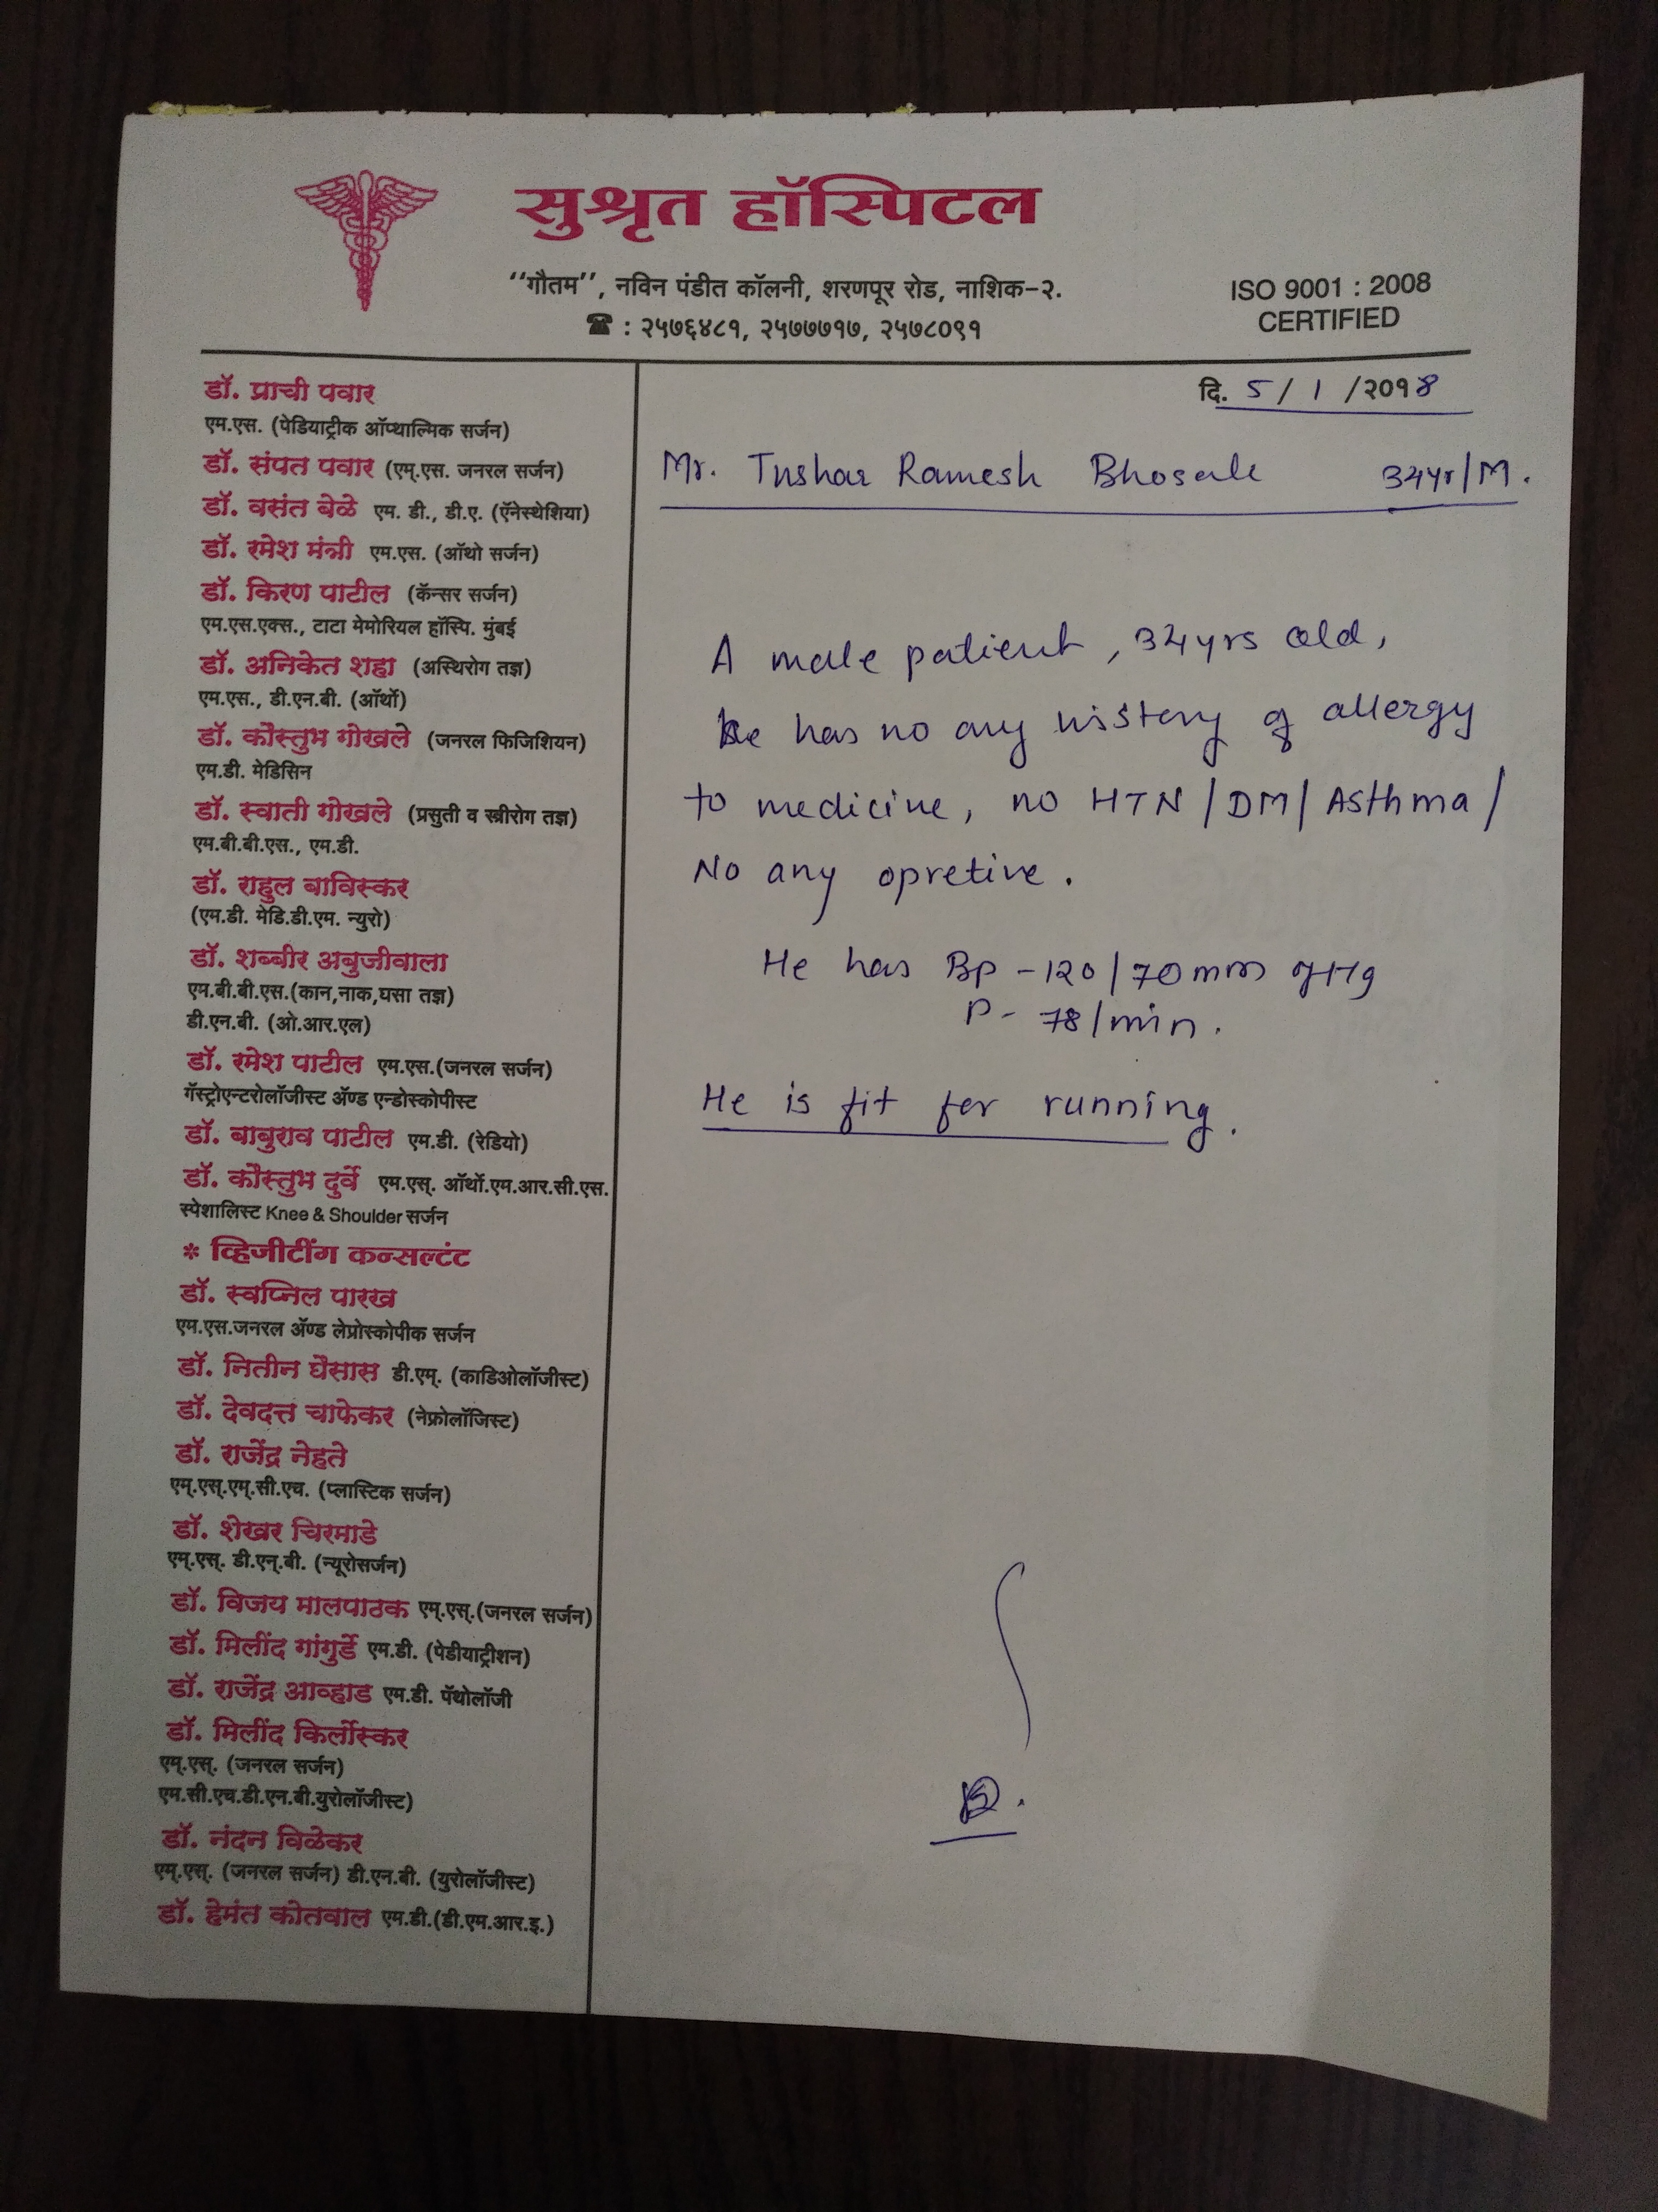 सुश्रृत हॉस्पिटल
‘‘गौतम’’, नविन पंडीत कॉलनी, शरणपूर रोड, नाशिक-२.
☎ : २५७६४८१, २५७७७१७, २५७८०९१
ISO 9001 : 2008
CERTIFIED
डॉ. प्राची पवार
एम.एस. (पेडियाट्रीक ऑप्थाल्मिक सर्जन)
डॉ. संपत पवार (एम्.एस. जनरल सर्जन)
डॉ. वसंत बेळे एम. डी., डी.ए. (ऍनेस्थेशिया)
डॉ. रमेश मंत्री एम.एस. (ऑथो सर्जन)
डॉ. किरण पाटील (कॅन्सर सर्जन)
एम.एस.एक्स., टाटा मेमोरियल हॉस्पि. मुंबई
डॉ. अनिकेत शहा (अस्थिरोग तज्ञ)
एम.एस., डी.एन.बी. (ऑर्थो)
डॉ. कौस्तुभ गोखले (जनरल फिजिशियन)
एम.डी. मेडिसिन
डॉ. स्वाती गोखले (प्रसुती व स्त्रीरोग तज्ञ)
एम.बी.बी.एस., एम.डी.
डॉ. राहुल बाविस्कर
(एम.डी. मेडि.डी.एम. न्युरो)
डॉ. शब्बीर अबुजीवाला
एम.बी.बी.एस.(कान,नाक,घसा तज्ञ)
डी.एन.बी. (ओ.आर.एल)
डॉ. रमेश पाटील एम.एस.(जनरल सर्जन)
गॅस्ट्रोएन्टरोलॉजीस्ट ॲण्ड एन्डोस्कोपीस्ट
डॉ. बाबुराव पाटील एम.डी. (रेडियो)
डॉ. कौस्तुभ दुर्वे एम.एस्. ऑर्थो.एम.आर.सी.एस.
स्पेशालिस्ट Knee & Shoulder सर्जन
* व्हिजीटींग कन्सल्टंट
डॉ. स्वप्निल पारख
एम.एस.जनरल ॲण्ड लेप्रोस्कोपीक सर्जन
डॉ. नितीन घैसास डी.एम्. (काडिओलॉजीस्ट)
डॉ. देवदत्त चाफेकर (नेफ्रोलॉजिस्ट)
डॉ. राजेंद्र नेहते
एम्.एस्.एम्.सी.एच. (प्लास्टिक सर्जन)
डॉ. शेखर चिरमाडे
एम्.एस्. डी.एन्.बी. (न्यूरोसर्जन)
डॉ. विजय मालपाठक एम्.एस्.(जनरल सर्जन)
डॉ. मिलींद गांगुर्डे एम.डी. (पेडीयाट्रीशन)
डॉ. राजेंद्र आव्हाड एम.डी. पॅथोलॉजी
डॉ. मिलींद किर्लोस्कर
एम्.एस्. (जनरल सर्जन)
एम.सी.एच.डी.एन.बी.युरोलॉजीस्ट)
डॉ. नंदन विळेकर
एम्.एस्. (जनरल सर्जन) डी.एन.बी. (युरोलॉजीस्ट)
डॉ. हेमंत कोतवाल एम.डी.(डी.एम.आर.इ.)
दि. 5 / 1 /२०१8
Mr. Tushar Ramesh Bhosale 34yr/M.
A male patient, 34yrs old,
he has no any history of allergy
to medicine, no HTN/DM/Asthma/
No any opretive.
He has Bp - 120/70mm of Hg
P - 78/min.
He is fit for running.